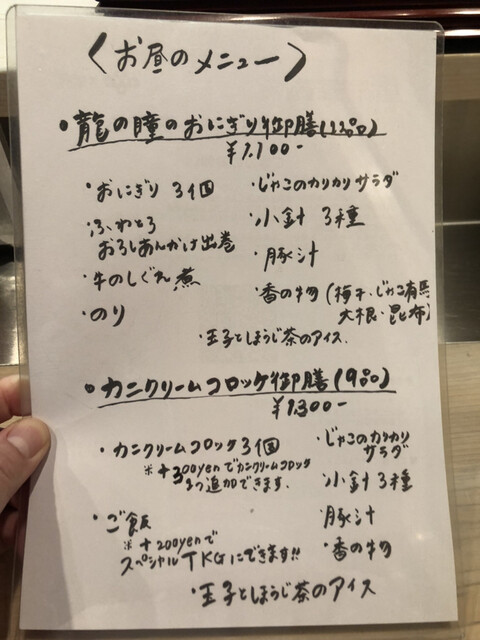 〈お昼のメニュー〉
・龍の瞳のおにぎり御膳(12品)
¥1.100-
・おにぎり 3個
・ふわとろ
おろしあんかけ出巻
・牛のしぐれ煮
・のり
・じゃこのカリカリサラダ
・小針 3種
・豚汁
・香の物(梅干・じゃこ有馬
大根・昆布)
・玉子とほうじ茶のアイス.
・カニクリームコロッケ御膳(9品)
¥1.300-
・カニクリームコロッケ3個
※+300yenでカニクリームコロッケ
1つ追加できます.
・ご飯
※+200yenで
スペシャルTKGにできます!!
・じゃこのカリカリ
サラダ
・小針3種
・豚汁
・香の物
・玉子とほうじ茶のアイス